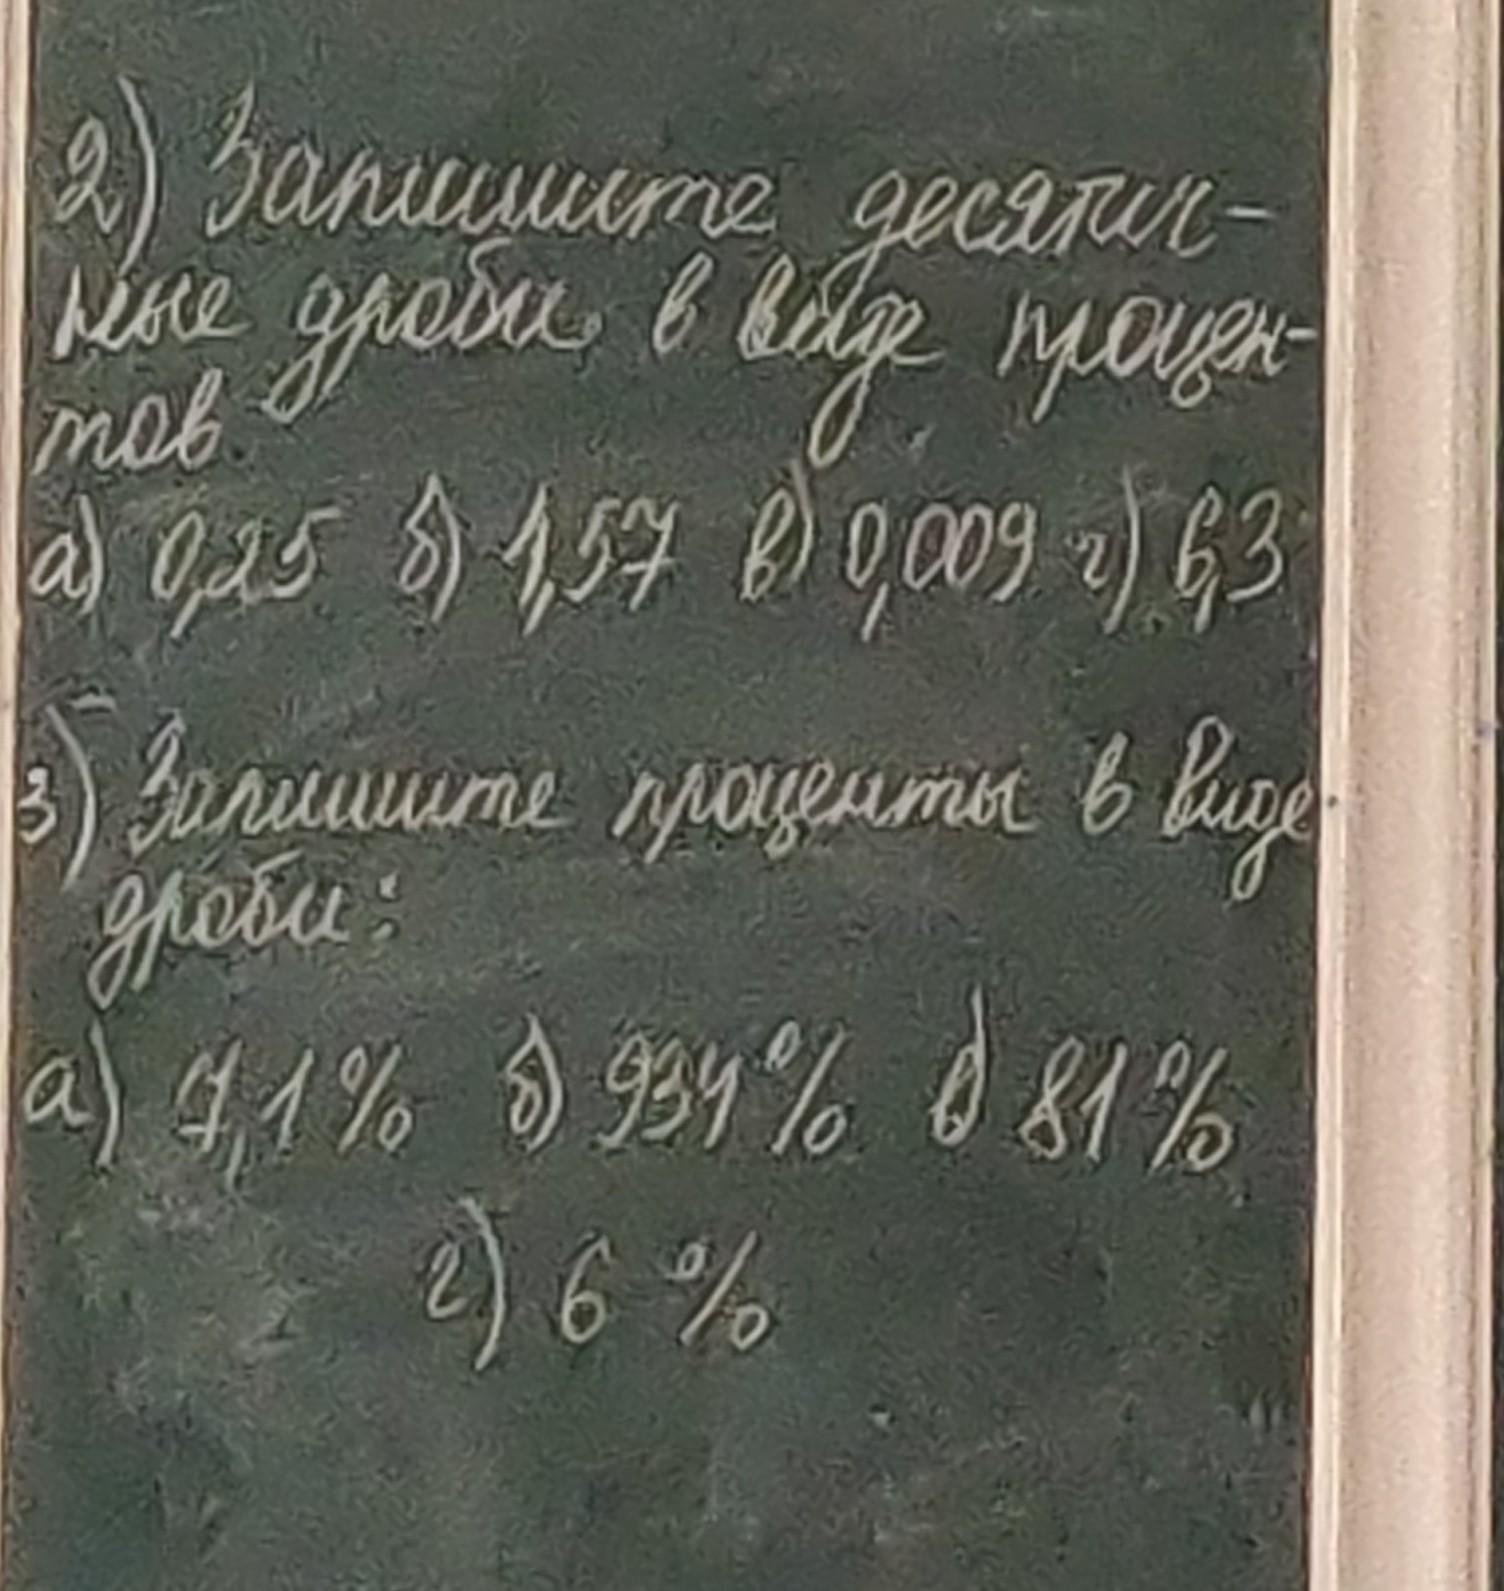 2) Запишите десятич-
ные дроби в виде процен-
тов
а) 0,25 б) 1,57 в) 0,009 г) 6,3
3) Запишите проценты в виде
дроби:
а) 7,1% б) 934% в) 81%
г) 6 %